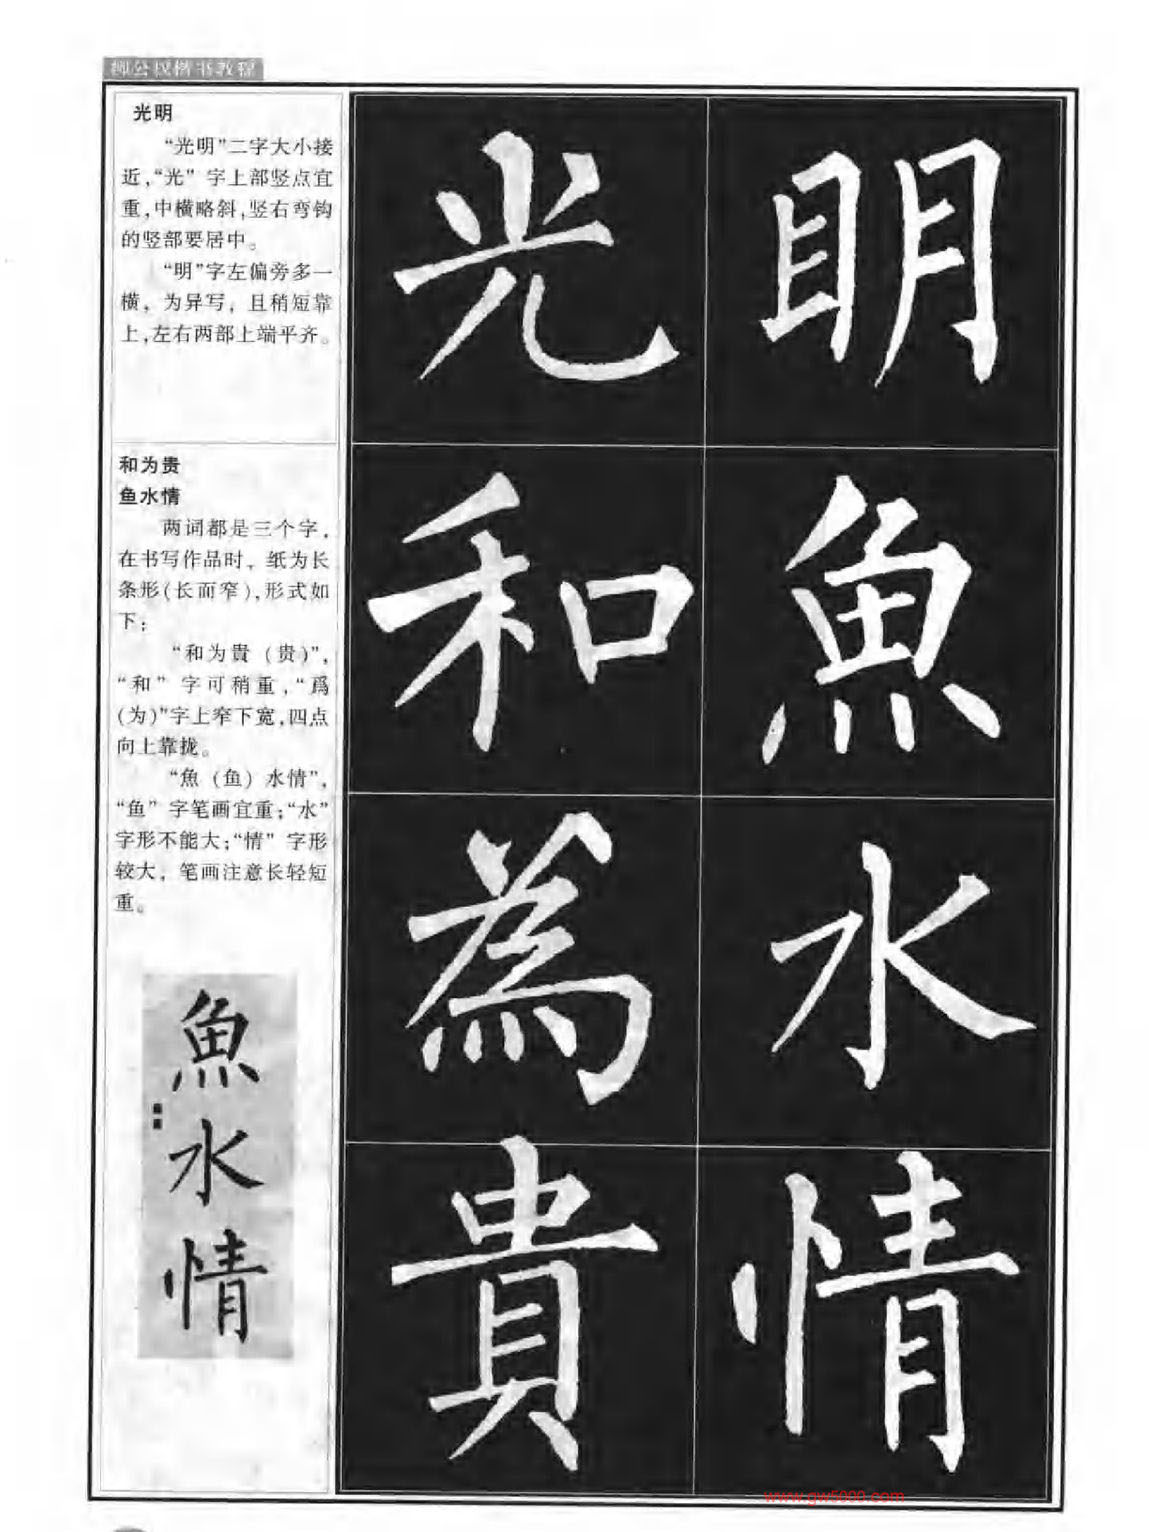 柳公权楷书教程
光明
“光明”二字大小接
近,“光”字上部竖点宜
重,中横略斜,竖右弯钩
的竖部要居中。
“明”字左偏旁多一
横，为异写，且稍短靠
上,左右两部上端平齐。
和为贵
鱼水情
两词都是三个字,
在书写作品时，纸为长
条形(长而窄),形式如
下:
“和为貴（贵)”,
“和”字可稍重,“爲
(为)”字上窄下宽,四点
向上靠拢。
“魚（鱼）水情”,
“鱼”字笔画宜重;“水”
字形不能大;“情”字形
较大，笔画注意长轻短
重。
魚
水
情
光明
和魚
為水
貴情
www.gw5000.com